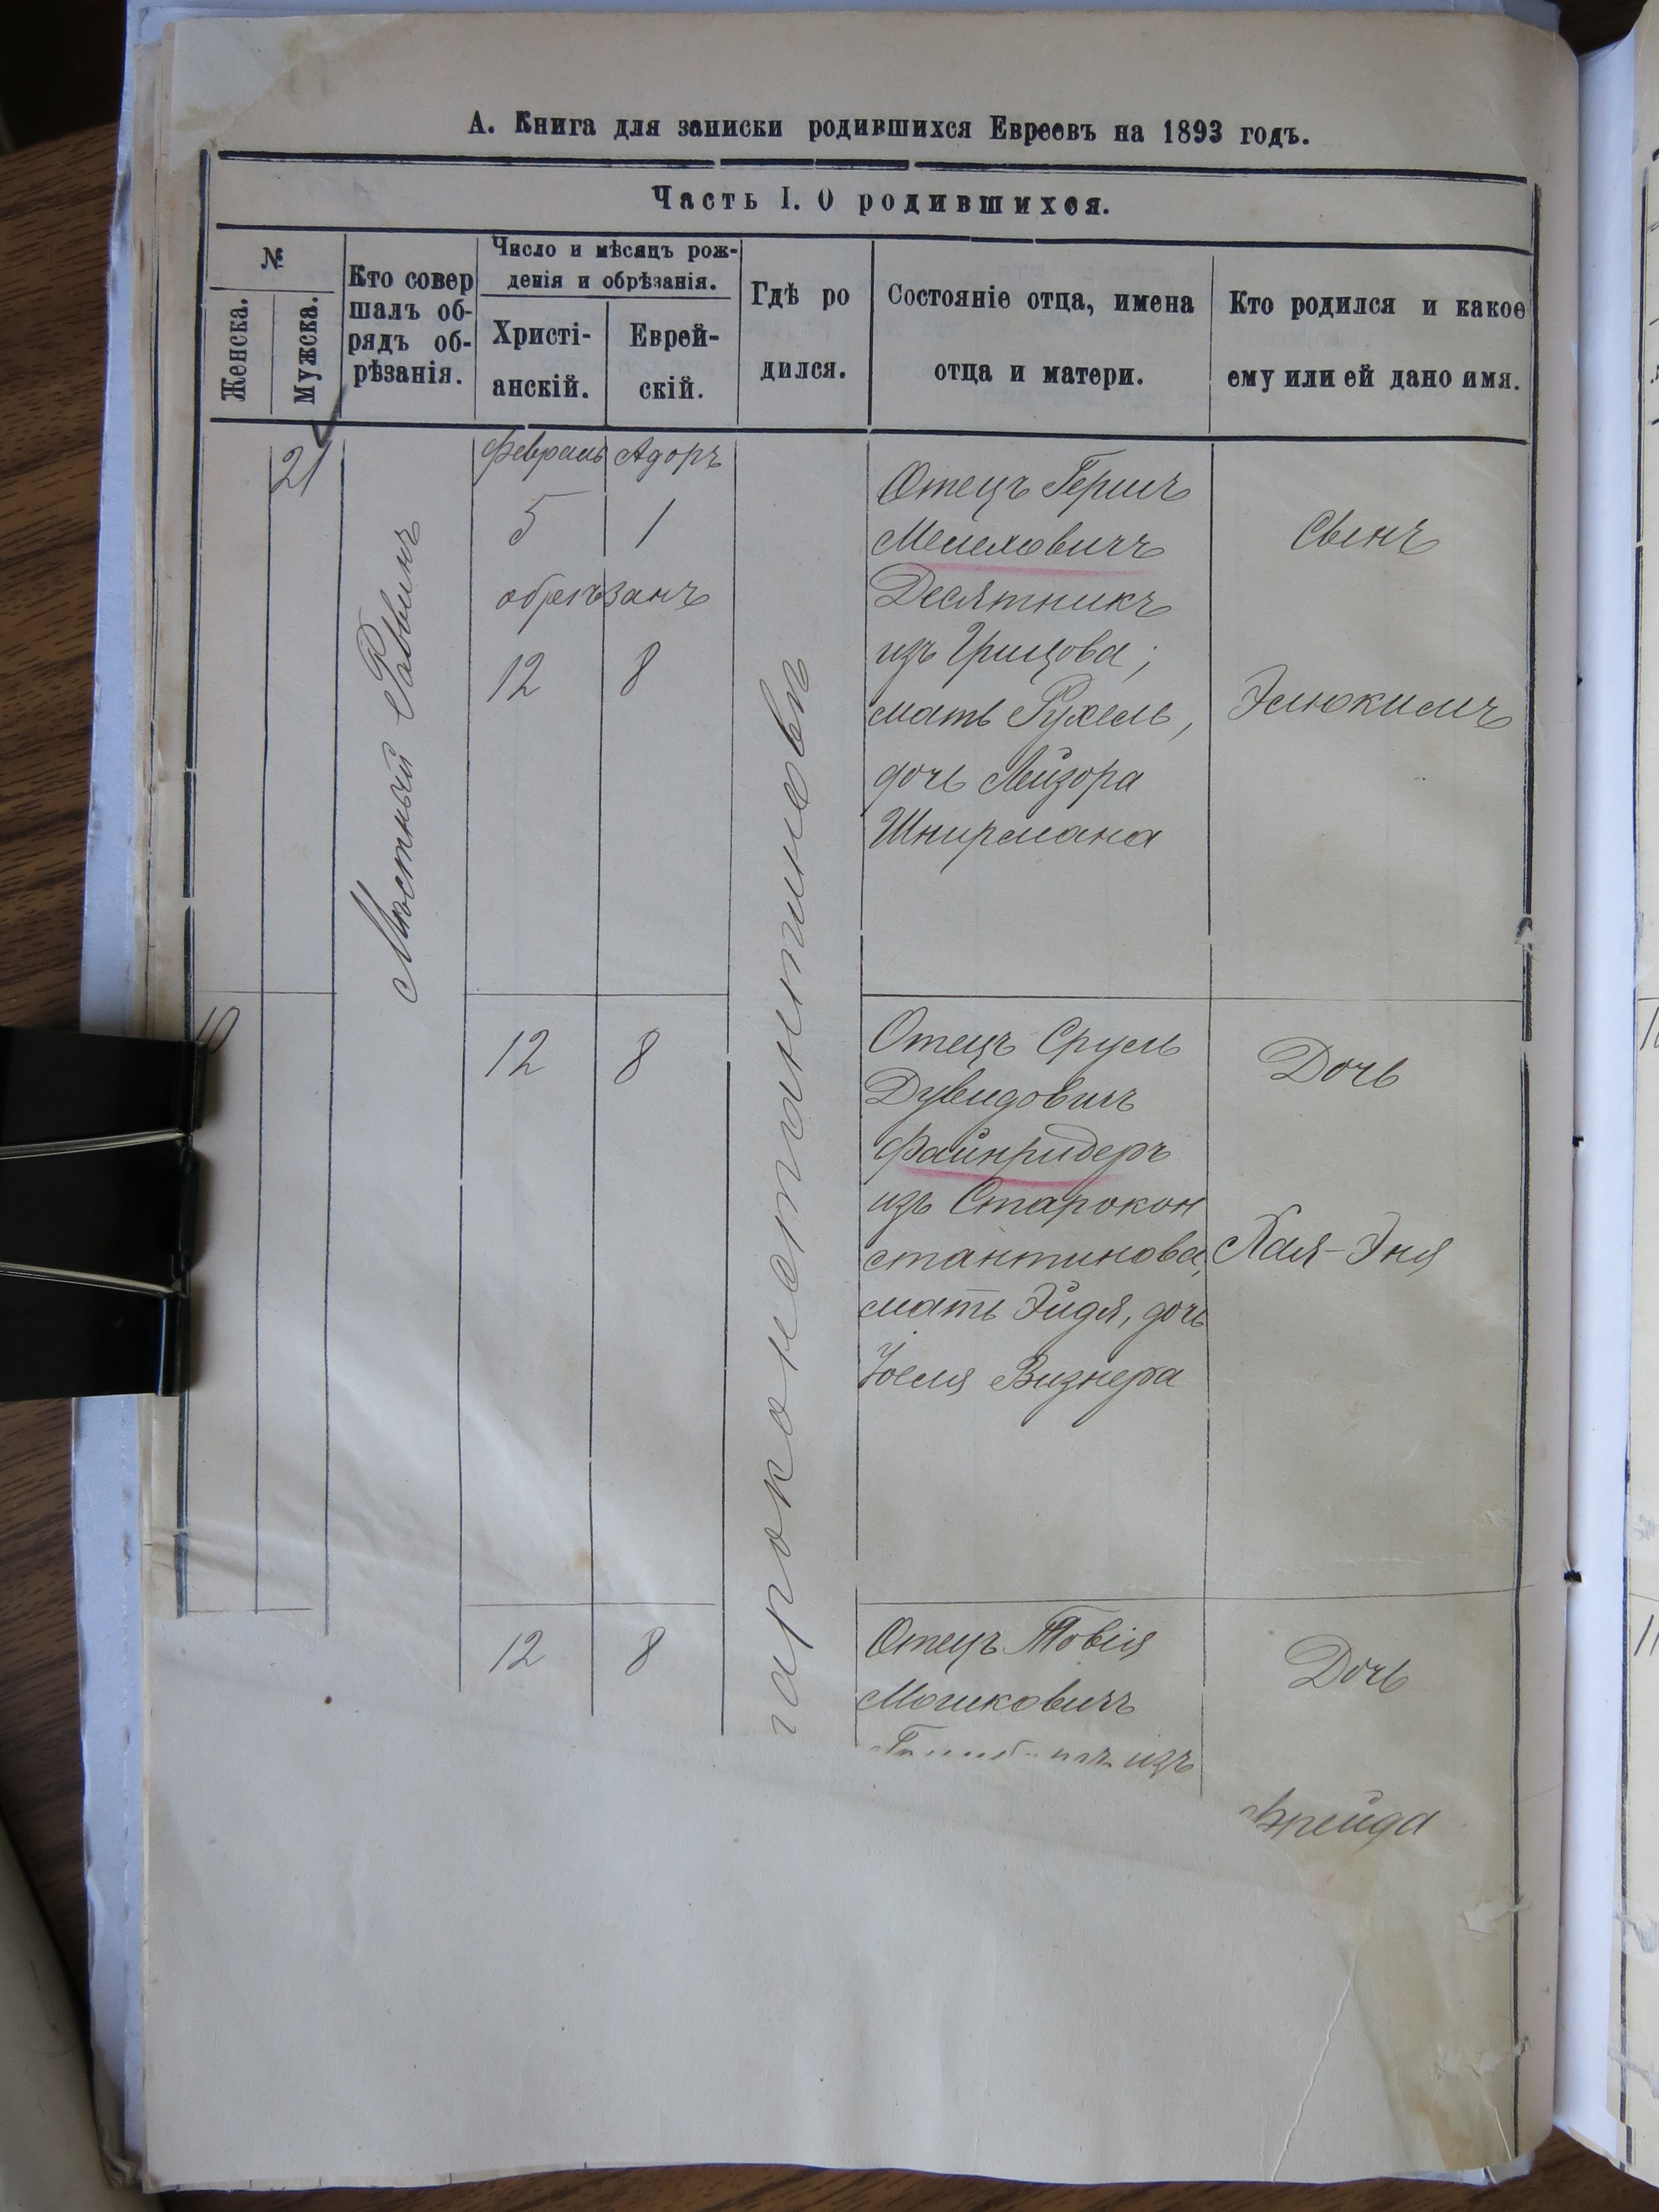 А. Книга для записки родившихся Евреевъ на 1893 годъ.
Часть I. О родившихся.
№
Женска.
Мужска.
Кто совер
шалъ об-
рядъ об-
рѣзанія.
Число и мѣсяцъ рож-
денія и обрѣзанія.
Христі-
анскій.
Еврей-
скій.
Гдѣ ро
дился.
Состояніе отца, имена
отца и матери.
Кто родился и какое
ему или ей дано имя.
21
Мѣстный Раввинъ
Февраль Адоръ
5 1
обрѣзанъ
12 8
Отецъ Гершъ
Мелеховичъ
Десятникъ
изъ Грицова;
мать Рухель,
дочь Лейзора
Шнирмана
Сынъ
Элюкимъ
12 8
Отецъ Сруль
Дувидовичъ
Файнридеръ
изъ Старокон
стантинова,
мать Эйдя, дочь
Іоеля Визнера
Дочь
Хая-Эня
12 8
Отецъ Товія
Мошковичъ
изъ
Дочь
Фрейда
тароконстантиновъ